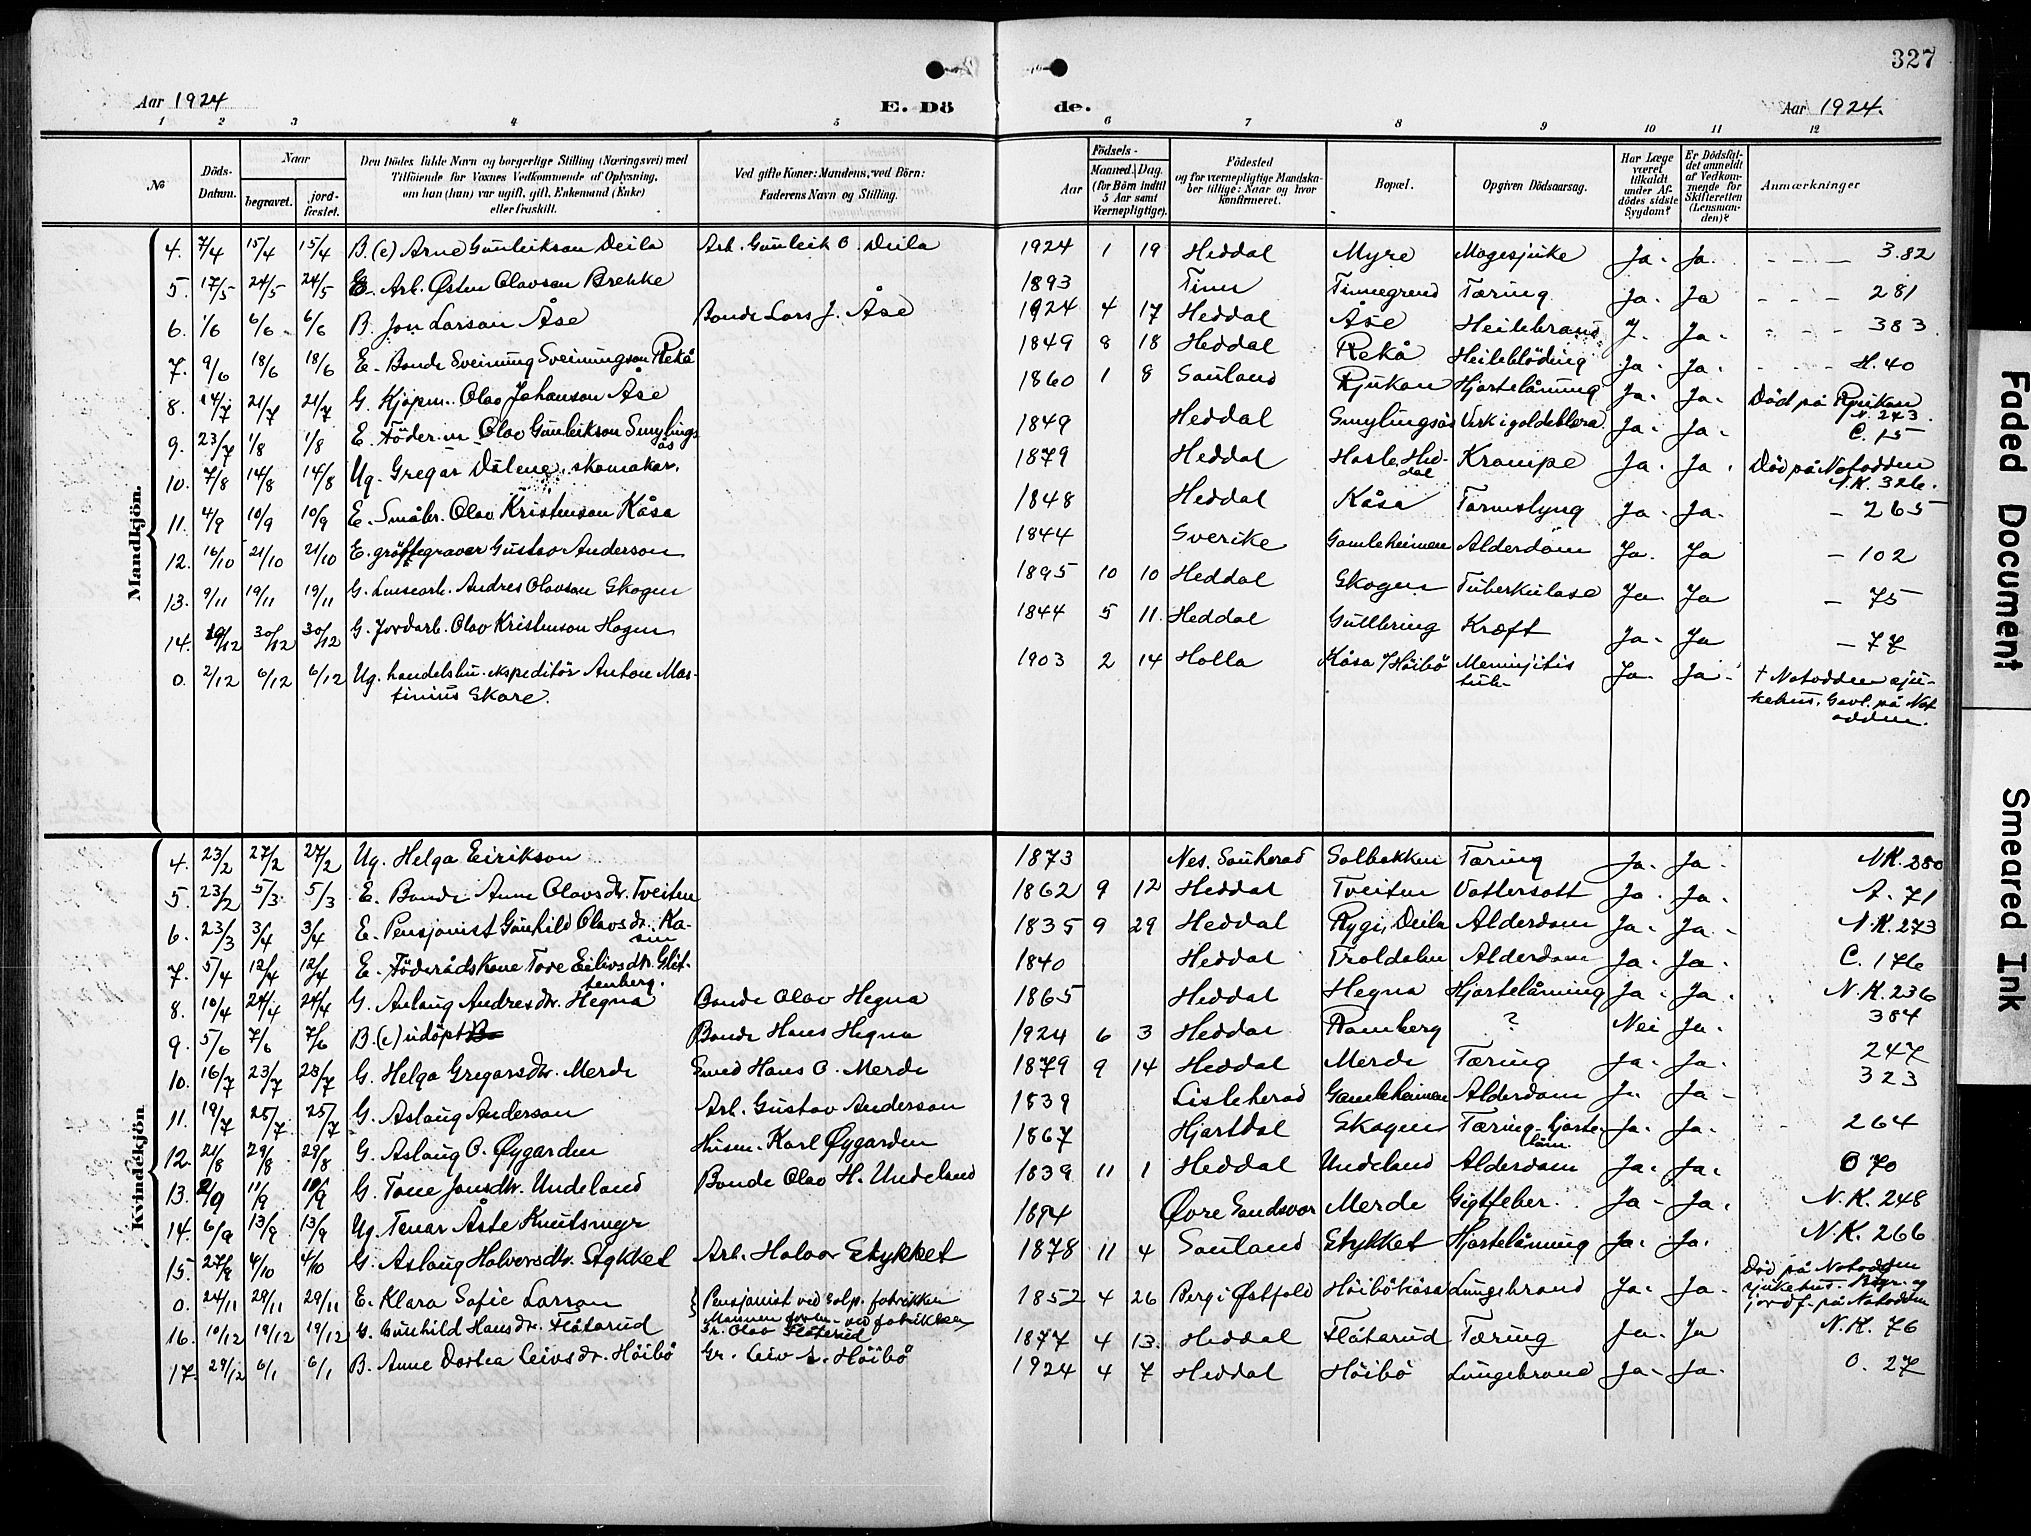 327
Aar 1924
E. Dö de.
Aar 1924.
1 2 3 4 5 6 7 8 9 10 11 12
No
Döds-Datum.
Naar
begravet.
jord-fæstet.
Den Dödes fulde Navn og borgerlige Stilling (Næringsvei) med
Tilföiende for Voxnes Vedkommende af Oplysning,
om han (hun) var ugift, gift, Enkemand (Enke)
eller fraskilt.
Ved gifte Koner: Mandens, ved Börn:
Faderens Navn og Stilling.
Födsels-
Aar
Maaned. Dag.
(for Börn indtil
5 Aar samt
Værnepligtige).
Födested
og for værnepligtige Mandska-
ber tillige: Naar og hvor
konfirmeret.
Bopæl.
Opgiven Dödsaarsag.
Har Læge
været
tilkaldt
under Af-
dödes sidste
Sygdom?
Er Dödsfal-
det anmeldt
af Vedkom-
mende for
Skifteretten
(Lensman-
den)?
Anmærkninger
Mandkjön.
4. 7/4 15/4 15/4 B. (e) Arne Gunleikson Deila Arb. Gunleik O. Deila 1924 1 19 Heddal Myre Magesjuke Ja. Ja. - - - 382
5. 17/5 24/5 24/5 E. Arb. Østen Olavson Brekke 1893 Tinn Tinnegrend Tæring Ja. Ja - - - 281
6. 1/6 6/6 6/6 B. Jon Larson Åse Bonde Lars J. Åse 1924 4 17 Heddal Åse Heilebrand J. Ja. - - - 383.
7. 9/6 18/6 18/6 E. Bonde Sveinung Sveinungson Rekå 1849 8 18 Heddal Rekå Heileblöding Ja. Ja. - - - H. 40
8. 14/7 21/7 21/7 G. Kjöpm. Olav Johanson Åse 1860 1 8 Sauland Rjukan Hjartelåming Ja. Ja. Död på Rjukan
N. 243.
9. 23/7 1/8 1/8 E. Föder.m. Olav Gunleikson Smylings-
ås 1849 Heddal Smylingsås Verk i galdeblæra Ja. Ja. C. 15
10. 7/8 14/8 14/8 Ug. Gregar Dalene, skomakar. 1879 Heddal Hed-
dal Krampe Ja. Ja. Död på Notodden
N.K. 326.
11. 4/9 10/9 10/9 E. Småbr. Olav Kristenson Kåsa 1848 Heddal Kåsa Tarmslyng Ja. Ja. - 265
12. 16/10 21/10 21/10 E. gröftegraver Gustav Anderson 1844 Sverike Gamleheimen Alderdom Ja. Ja - 102
13. 9/11 19/11 19/11 G. Andres Olavson Skogen 1895 10 10 Heddal Skogen Tuberkulose Ja. Ja - 75
14. 30/12 30/12 G. Jordarb. Olav Kristenson Hagen 1844 5 11. Heddal Gullbring Kræft Ja. Ja - 77
0. 2/12 6/12 6/12 Ug. handelsbu. ekspeditör Anton Mar-
tinius Skare. 1903 2 14 Holla Kåsa u/Höibö Meninjitis
tub. Ja. Ja. † Notodden sju-
kehus. Gravl. på Not
odden.
Kvindekjön.
4. 23/2 27/2 27/2 Ug. Helga Eirikson 1873 Nes. Sauherad Solbakken Tæring Ja. Ja. NK. 280
5. 23/2 5/3 5/3 E. Bonde Anne Olavsdtr. Tveiten 1862 9 12 Heddal Tveiten Vattersott Ja. Ja. A. 71
6. 23/3 3/4 3/4 E. Pensjonist Gunhild Olavsdtr. Ka-
sin 1835 9 29 Heddal Rygi, Deila Alderdom Ja. Ja. N.K. 273
7. 5/4 12/4 12/4 E. Föderådskone Tore Eilivsdtr. Glit-
tenberg. 1840 Heddal Troldalen Alderdom Ja. Ja. C. 176
8. 10/4 24/4 24/4 G. Aslaug Andresdtr. Hegna Bonde Olav Hegna 1865 Heddal Hegna Hjartelåming Ja. Ja. N.K. 236
9. 5/6 7/6 7/6 B. (e) udöpt Bonde Hans Hegna 1924 6 3 Heddal Ramberg ? Nei Ja. 384
10. 16/7 23/7 23/7 G. Helga Gregarsdtr. Merde Smed Hans O. Merde 1879 9 14 Heddal Merde Tæring Ja. Ja. 247
11. 19/7 25/7 25/7 G. Aslaug Anderson Arb. Gustav Anderson 1839 Lisleherad Gamleheimen Alderdom Ja. Ja - 323
12. 21/8 29/8 29/8 G. Aslaug O. Øygarden Husm. Karl Øygarden 1867 Hjartdal Skogen Tæring-hjarte-
låm. Ja. Ja. 264
13. 2/9 11/9 G. Tone Jonsdtr. Undeland Bonde Olav H. Undeland 1839 11 1 Heddal Undeland Alderdom Ja. Ja. O 70
14. 6/9 13/9 13/9 Ug Tenar Åste Knutsmyr 1894 Øvre Sandsvær Merde Gigtfeber. Ja. Ja. N.K. 248
15. 27/9 4/10 4/10 G. Aslaug Halvorsdtr. Stykket Arb. Halvor Stykket 1878 11 4 Sauland Stykket Hjartelåming Ja. Ja. N.K. 266
0. 24/11 29/11 29/11 E. Klara Sofie Larson Pensjonist ved salp. fabrikken
Mannen form. ved fabrikken 1852 4 26 Berg i Østfold Höibökåsa Lungebrand Ja. Ja. Död på Notodden
sjukehus. Begr. og
jordf. på Notodden
16. 10/12 19/12 19/12 G. Gunhild Hansdtr. Flåtarud Gr. Olav Flåtarud 1877 4 13. Heddal Flåtarud Tæring Ja. Ja N.K. 76
17. 29/12 6/1 6/1 B. Anne Dortea Leivsdtr. Höibö Gr. Leiv A. Höibö 1924 4 7 Heddal Höibö Lungebrand Ja. Ja. O. 27
Faded Document
Smeared Ink